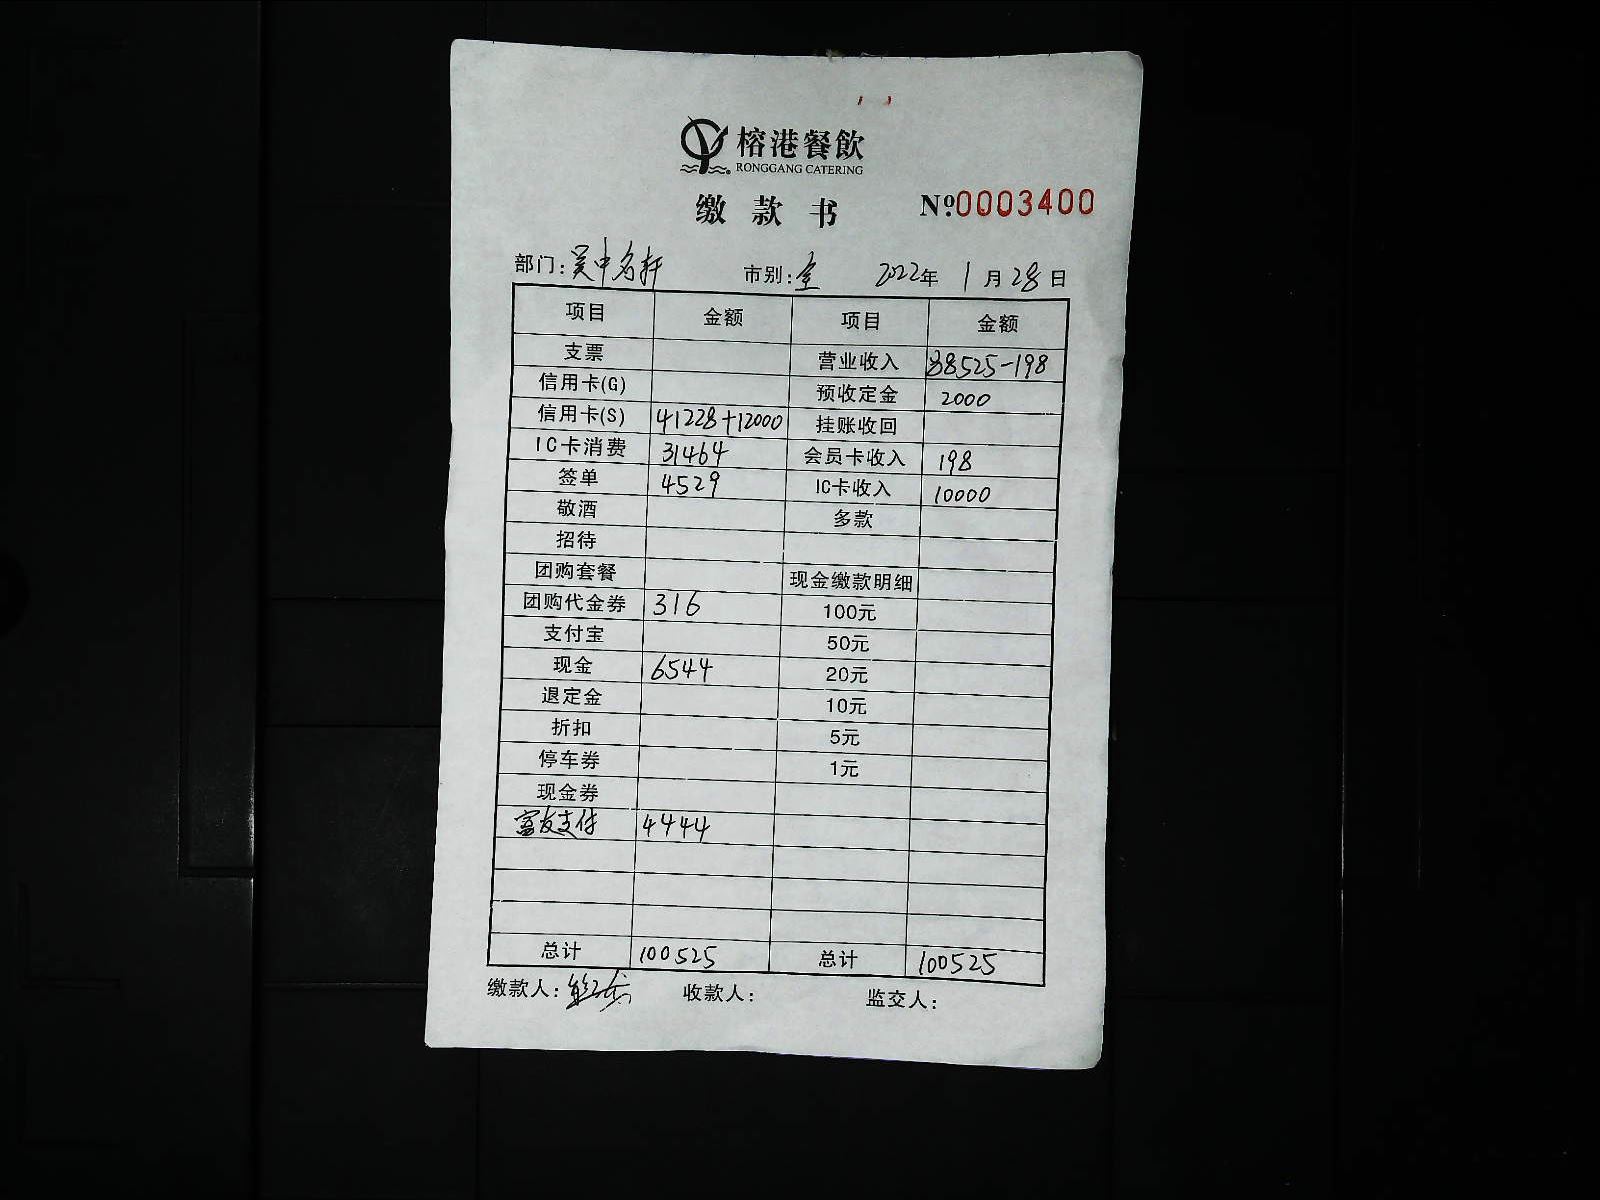 榕港餐飲
RONGGANG CATERING
缴款书 Nº0003400
部门：吴中名轩 市别：全 2022年1月28日
项目 金额 项目 金额
支票 营业收入 88525-198
信用卡(G) 预收定金 2000
信用卡(S) 41228+12000 挂账收回
IC卡消费 31464 会员卡收入 198
签单 4529 IC卡收入 10000
敬酒 多款
招待
团购套餐 现金缴款明细
团购代金券 316 100元
支付宝 50元
现金 6544 20元
退定金 10元
折扣 5元
停车券 1元
现金券
富友支付 4444
总计 100525 总计 100525
缴款人： 收款人： 监交人：